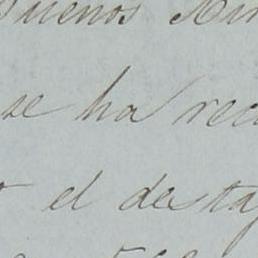 Buenos Air
se ha rec
el desta